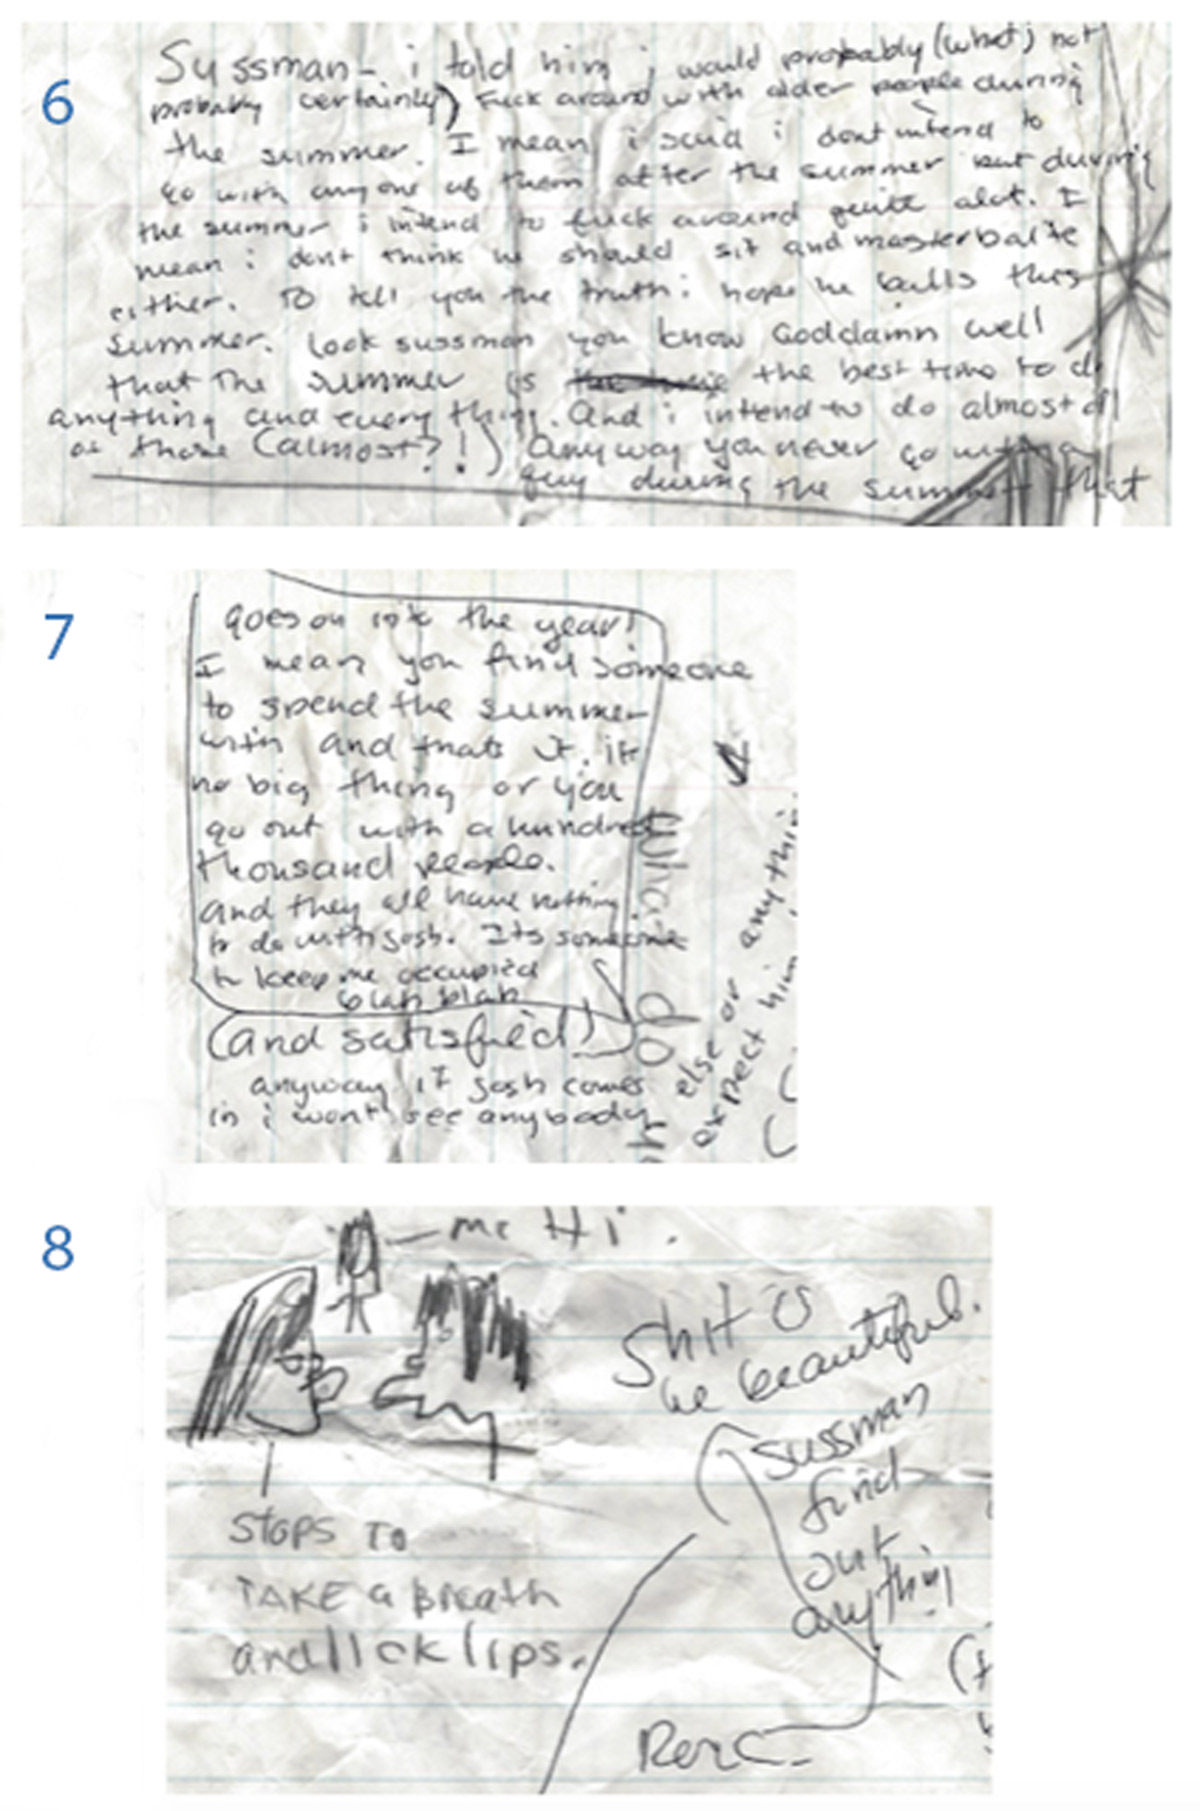 6
Sussman - i told him i would probably (what) not
probably certainly) fuck around with older people during
the summer. I mean i said i dont intend to
go with anyone of them after the summer but during
the summer i intend to fuck around quite alot. I
mean i dont think he should sit and masterbaite
either. To tell you the truth i hope he balls this
summer. Look sussman you know Goddamn well
that the summer is the best time to do
anything and everything. And i intend to do almost all
of those (almost?!) Anyway you never go with a
guy during the summer that
7
goes on into the year!
I mean you find someone
to spend the summer
with and thats it. it
no big thing or you
go out with a hundred
thousand people.
and they all have nothing
to do with Josh. Its someone
to keep me occupied
blah blah
(and satisfied)
anyway if Josh comes
in i wont see anybody
else or anythin
expect him
What do
8
me Hi.
Stops To
TAKE a Breath
and lick lips.
Shit
he beautiful.
Sussman
find
out
anything